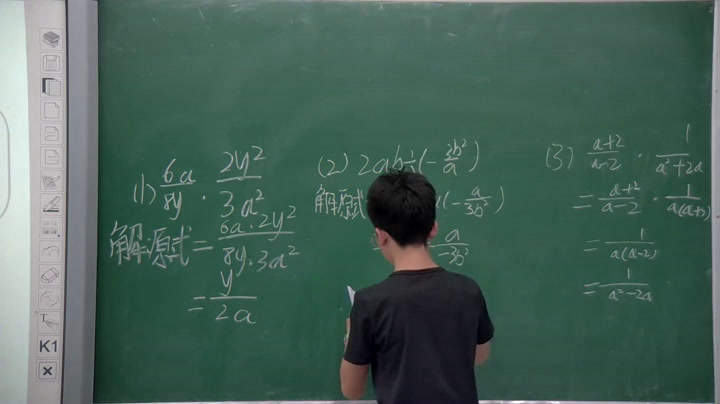 (1) 6a/8y · 2y²/3a²
解:原式 = 6a·2y²/8y·3a²
= y/2a
(2) 2ab÷(-3b²/a)
解:原式 (-a/3b²)
a/-3b²
(3) a+2/a-2 · 1/a²+2a
= a+2/a-2 · 1/a(a+2)
= 1/a(a-2)
= 1/a²-2a
K1